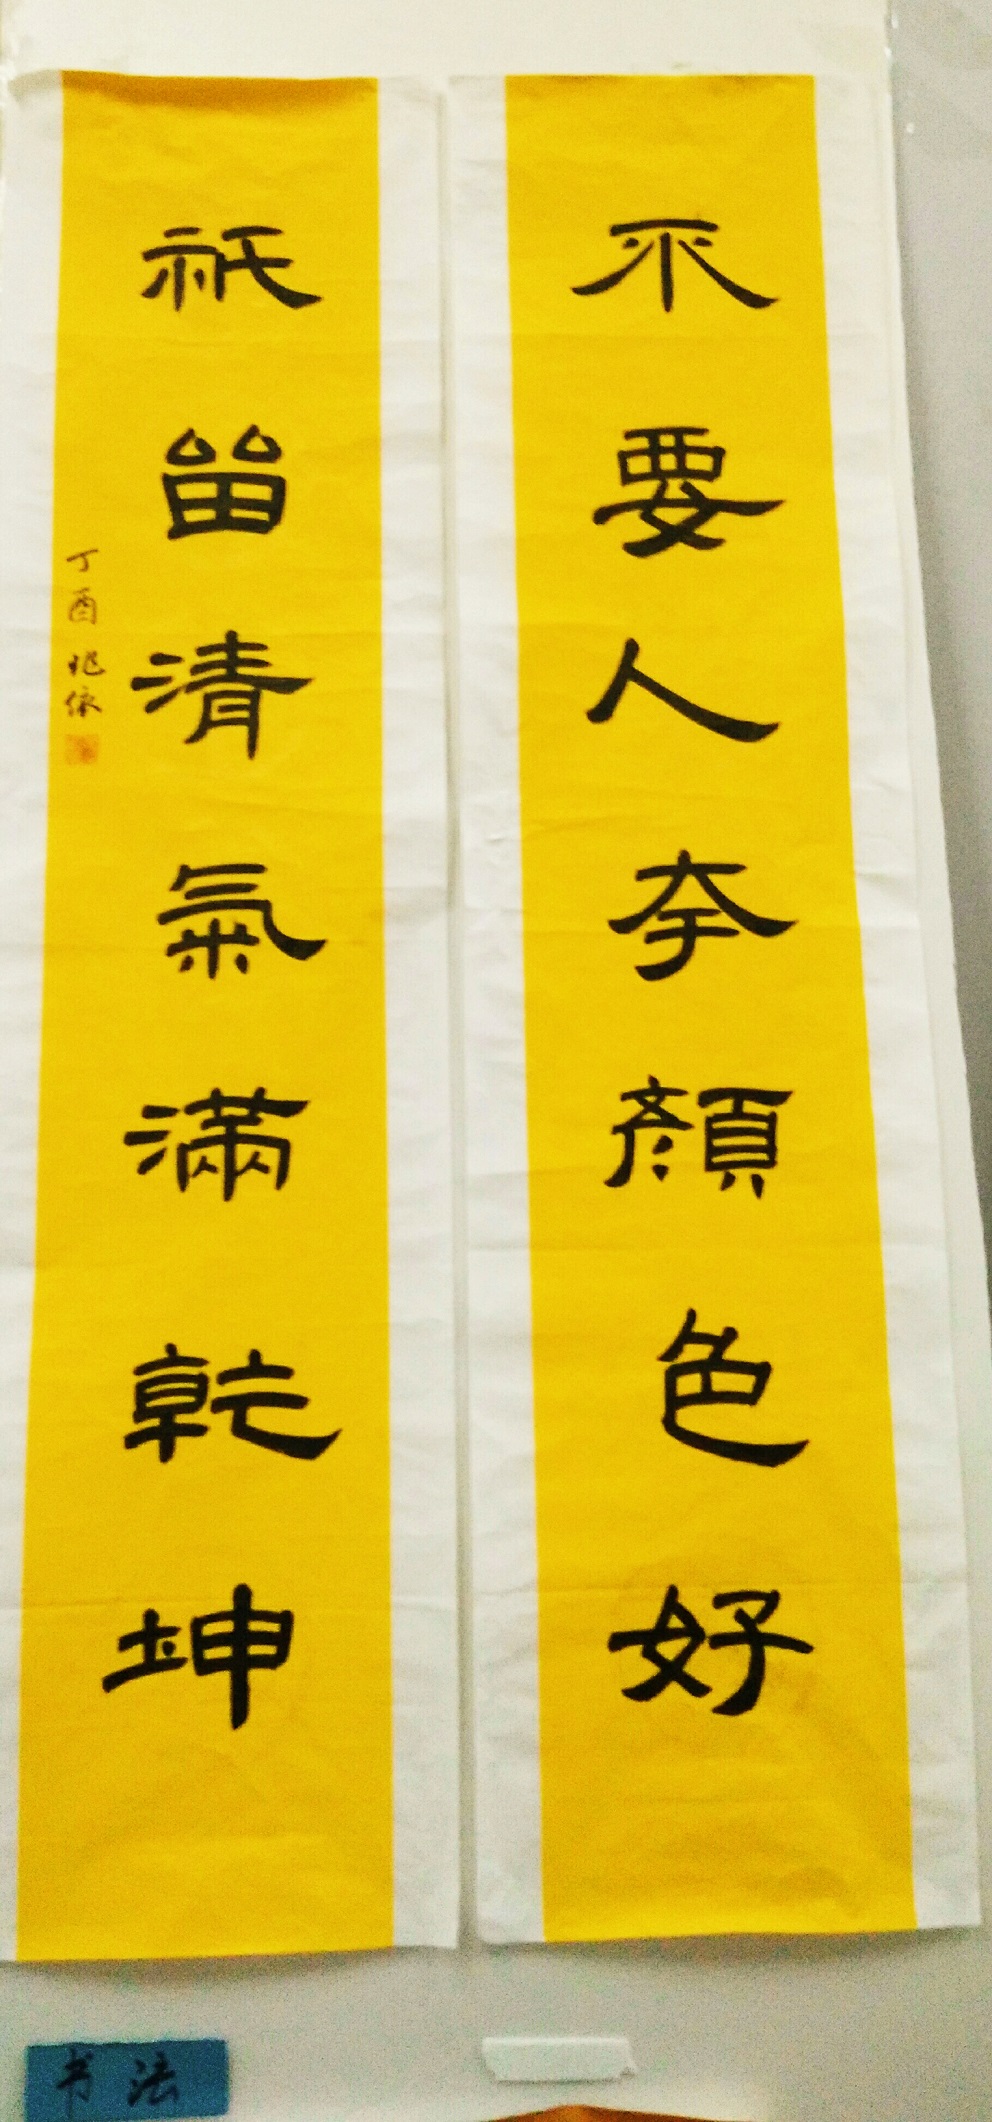 不要人夸顏色好
祇留清氣滿乾坤
丁酉 兆依
书法